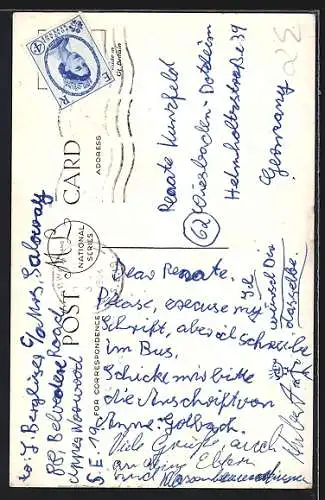 POST CARD
NATIONAL SERIES
FOR CORRESPONDENCE
ADDRESS
Renate Kunzfeld
62 Wiesbaden-Dotzheim
Helmholtzstraße 34
Germany
Dear Renate.
Please, excuse my
Schrift, aber ich schreibe
im Bus,
Schicke mir bitte
die Anschrift von
Anne Golbach.
Viele Grüße, auch
an Eltern
und
Ich
wünsch Dir
dasselbe.
c/o Mrs. Galoway
88, Belvedere Road
Upper Norwood
S.E 19